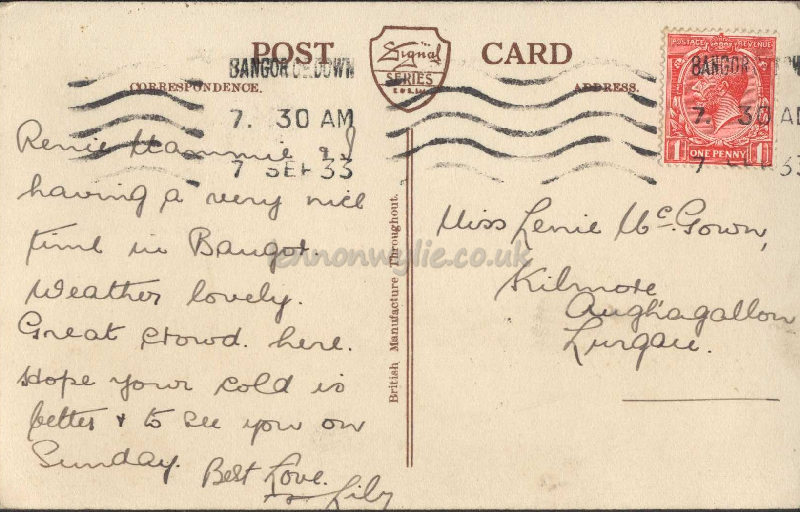 POST CARD
Signal
SERIES
BANGOR CO. DOWN
CORRESPONDENCE.
ADDRESS.
7. 30 AM
7 SEP 33
Renie Mammie & I
having a very nice
time in Bangor.
Weather lovely.
Great crowd. here.
Hope your cold is
better & to see you on
Sunday.
Best Love.
Lily
British Manufacture Throughout.
Miss Lenie Mc.Gown,
Kilmore
Aughagallon
Lurgan.
POSTAGE REVENUE
1 ONE PENNY 1
BANGOR
7. 30 A
7 SEP 33
lennonwylie.co.uk